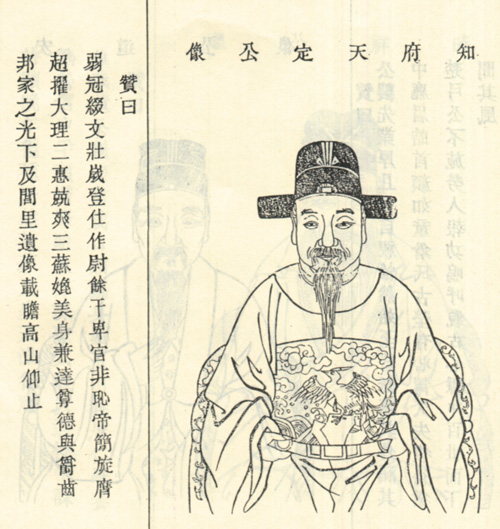 知府天定公像
贊曰
弱冠綴文壯歲登仕作尉餘干卑官非恥帝簡旋膺
超擢大理二惠競爽三蘇媲美身兼達尊德與爵齒
邦家之光下及閭里遺像載瞻高山仰止